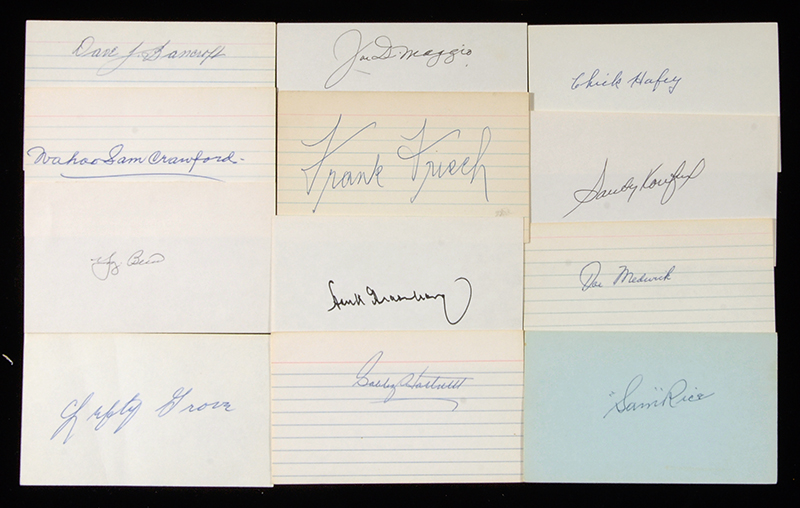 Dave J. Bancroft
Joe DiMaggio
Chick Hafey
Wahoo Sam Crawford
Frank Frisch
Sandy Koufax
Yogi Berra
Hank Greenberg
Joe Medwick
Lefty Grove
Gabby Hartnett
"Sam" Rice